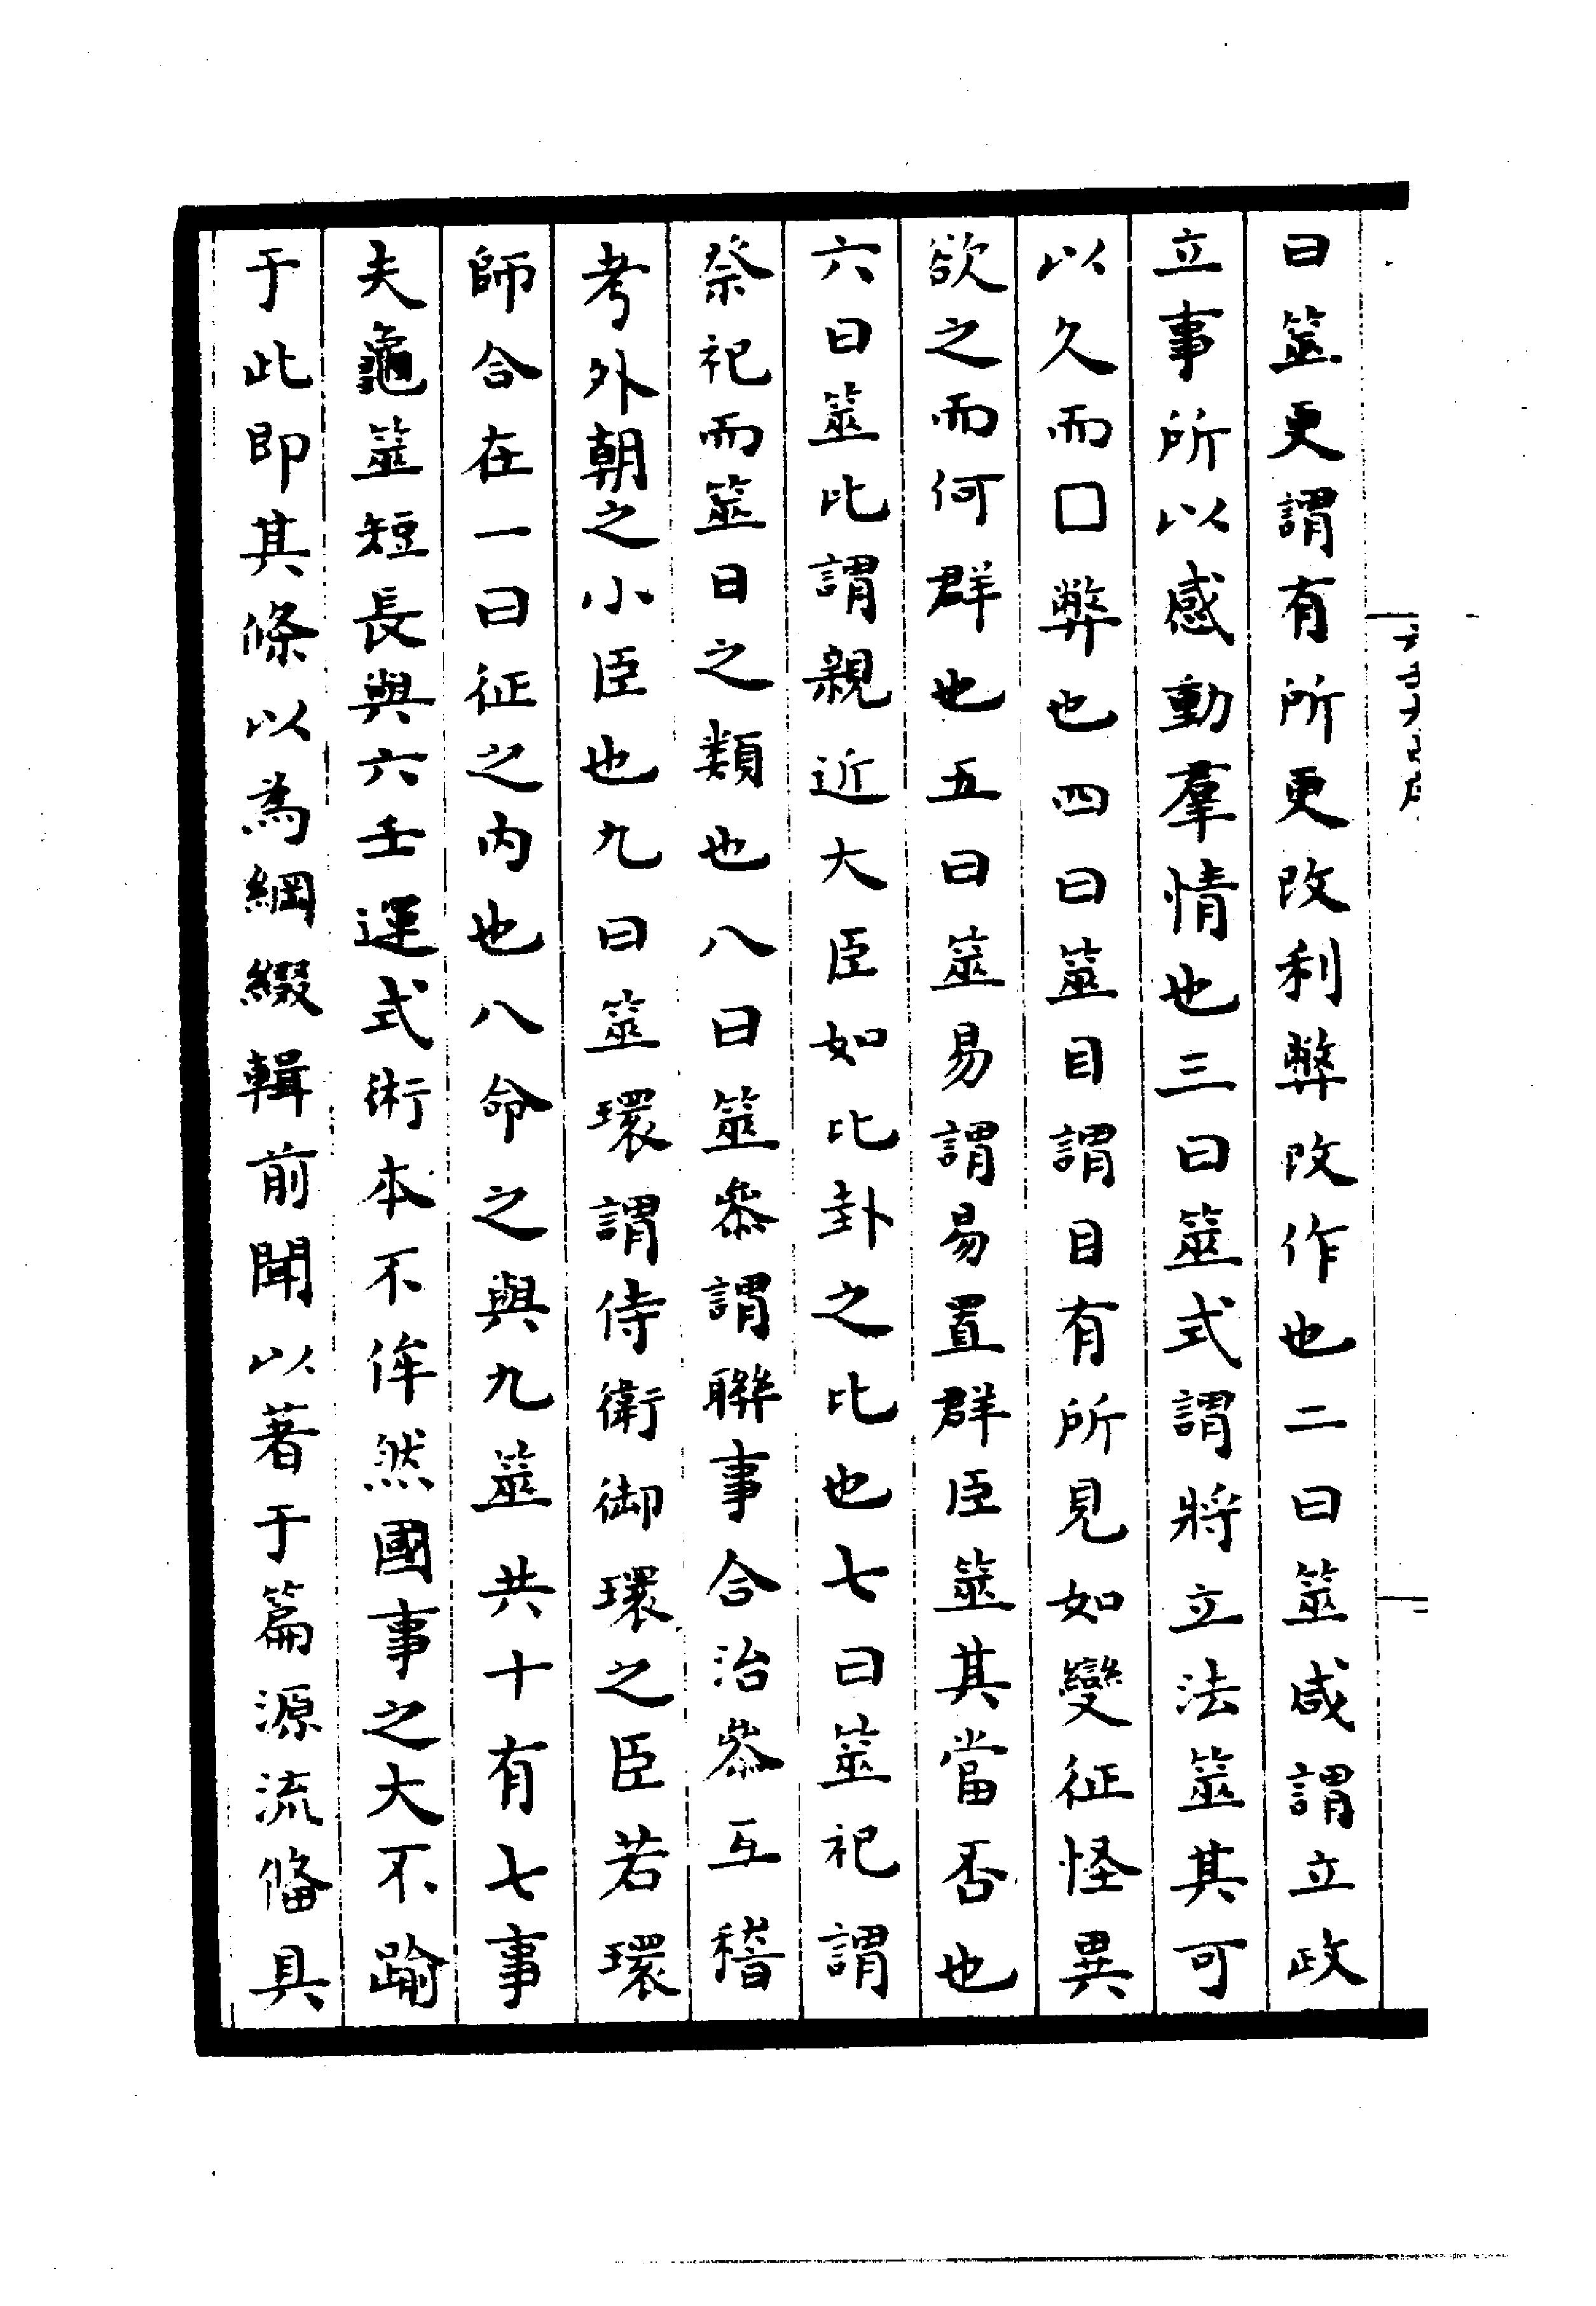 曰筮更謂有所更改利弊改作也二曰筮咸謂立政
立事所以感動羣情也三曰筮式謂將立法筮其可
以久而口弊也四曰筮目謂目有所見如變征怪異
欲之而何群也五曰筮易謂易置群臣筮其當否也
六曰筮比謂親近大臣如比卦之比也七曰筮祀謂
祭祀而筮日之類也八曰筮叅謂聯事合治叅互稽
考外朝之小臣也九曰筮環謂侍衛御環之臣若環
師合在一曰征之内也八命之與九筮共十有七事
夫龜筮短長與六壬運式術本不侔然國事之大不踰
于此即其條以為綱綴輯前聞以著于篇源流偹具